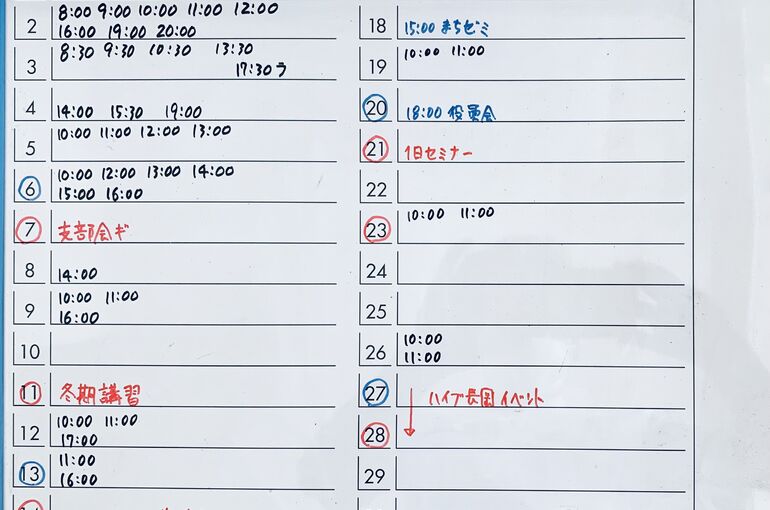 2 8:00 9:00 10:00 11:00 12:00
16:00 19:00 20:00
3 8:30 9:30 10:30 13:30
17:30 ラ
4 14:00 15:30 19:00
5 10:00 11:00 12:00 13:00
6 10:00 12:00 13:00 14:00
15:00 16:00
7 支部会ギ
8 14:00
9 10:00 11:00
16:00
10
11 冬期講習
12 10:00 11:00
17:00
13 11:00
16:00
18 15:00 まちゼミ
19 10:00 11:00
20 18:00 役員会
21 1日セミナー
22
23 10:00 11:00
24
25
26 10:00
11:00
27 ハイブ長岡イベント
28
29